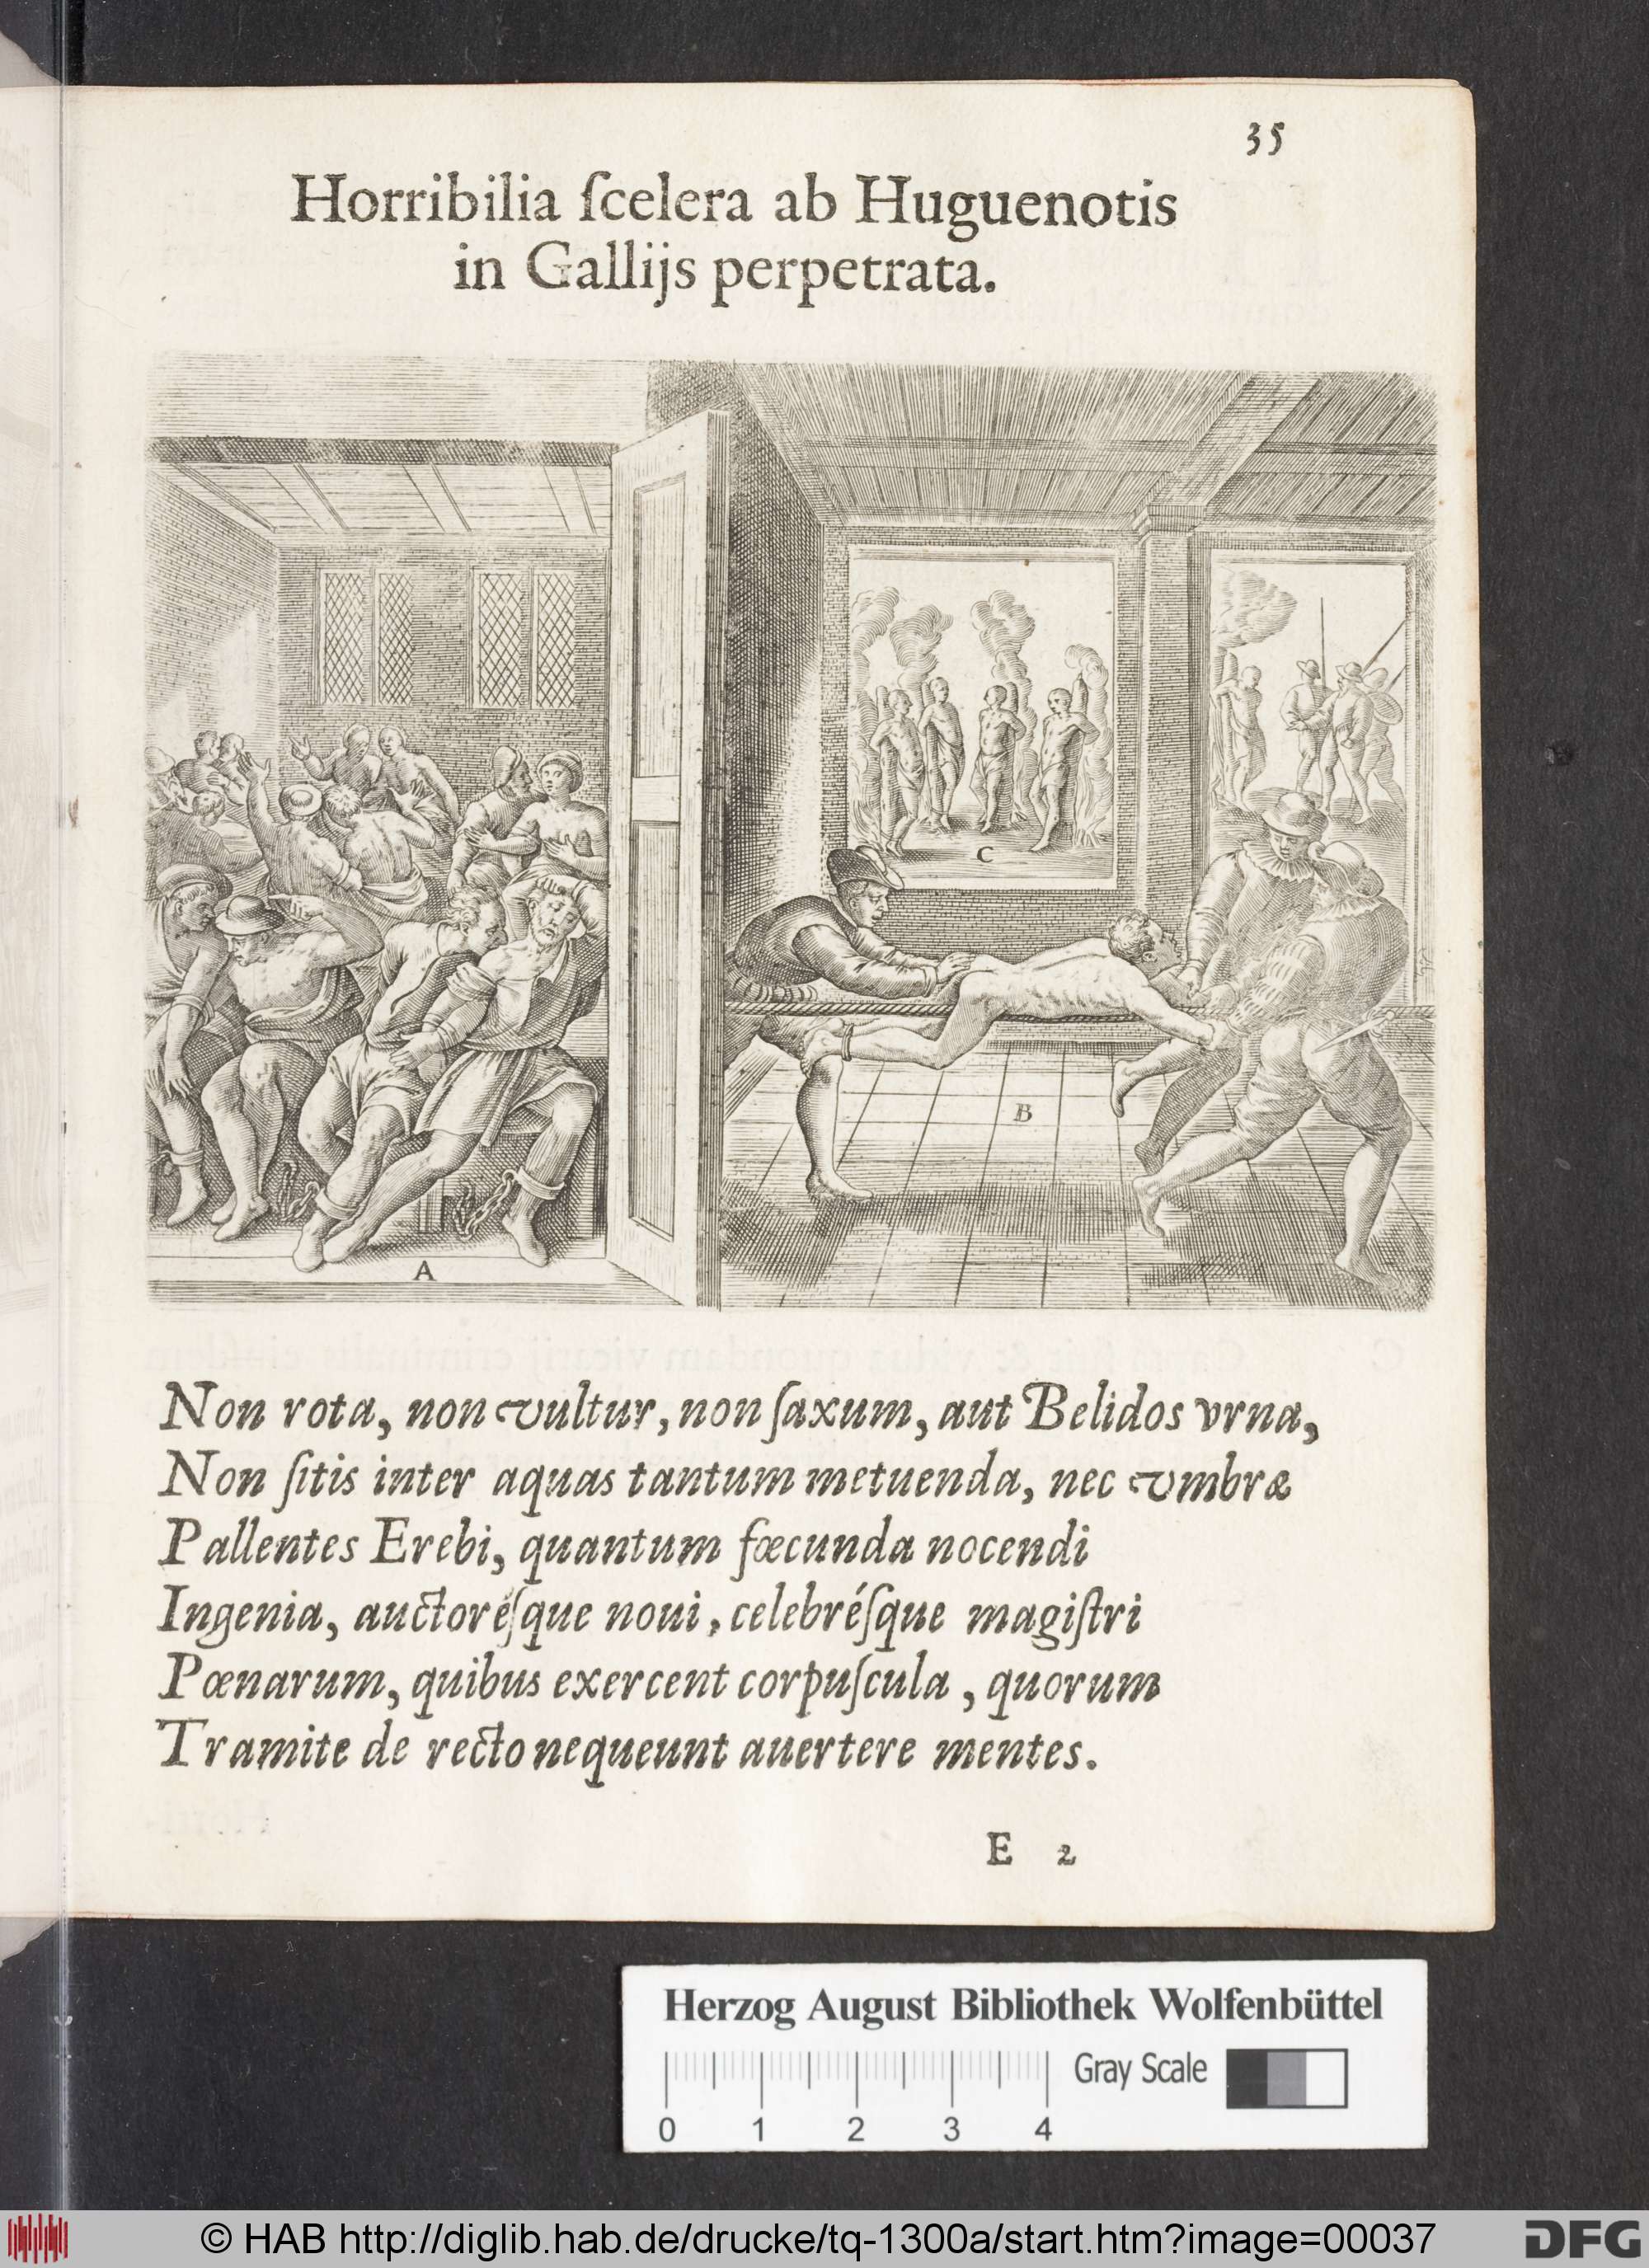 35
Horribilia ſcelera ab Huguenotis
in Gallijs perpetrata.
C
B
A
Non rota, non vultur, non ſaxum, aut Belidos vrna,
Non ſitis inter aquas tantum metuenda, nec vmbræ
Pallentes Erebi, quantum fœcunda nocendi
Ingenia, auctoréſque noui, celebréſque magiſtri
Pœnarum, quibus exercent corpuſcula, quorum
Tramite de recto nequeunt auertere mentes.
E 2
Herzog August Bibliothek Wolfenbüttel
Gray Scale
0 1 2 3 4
© HAB http://diglib.hab.de/drucke/tq-1300a/start.htm?image=00037
DFG